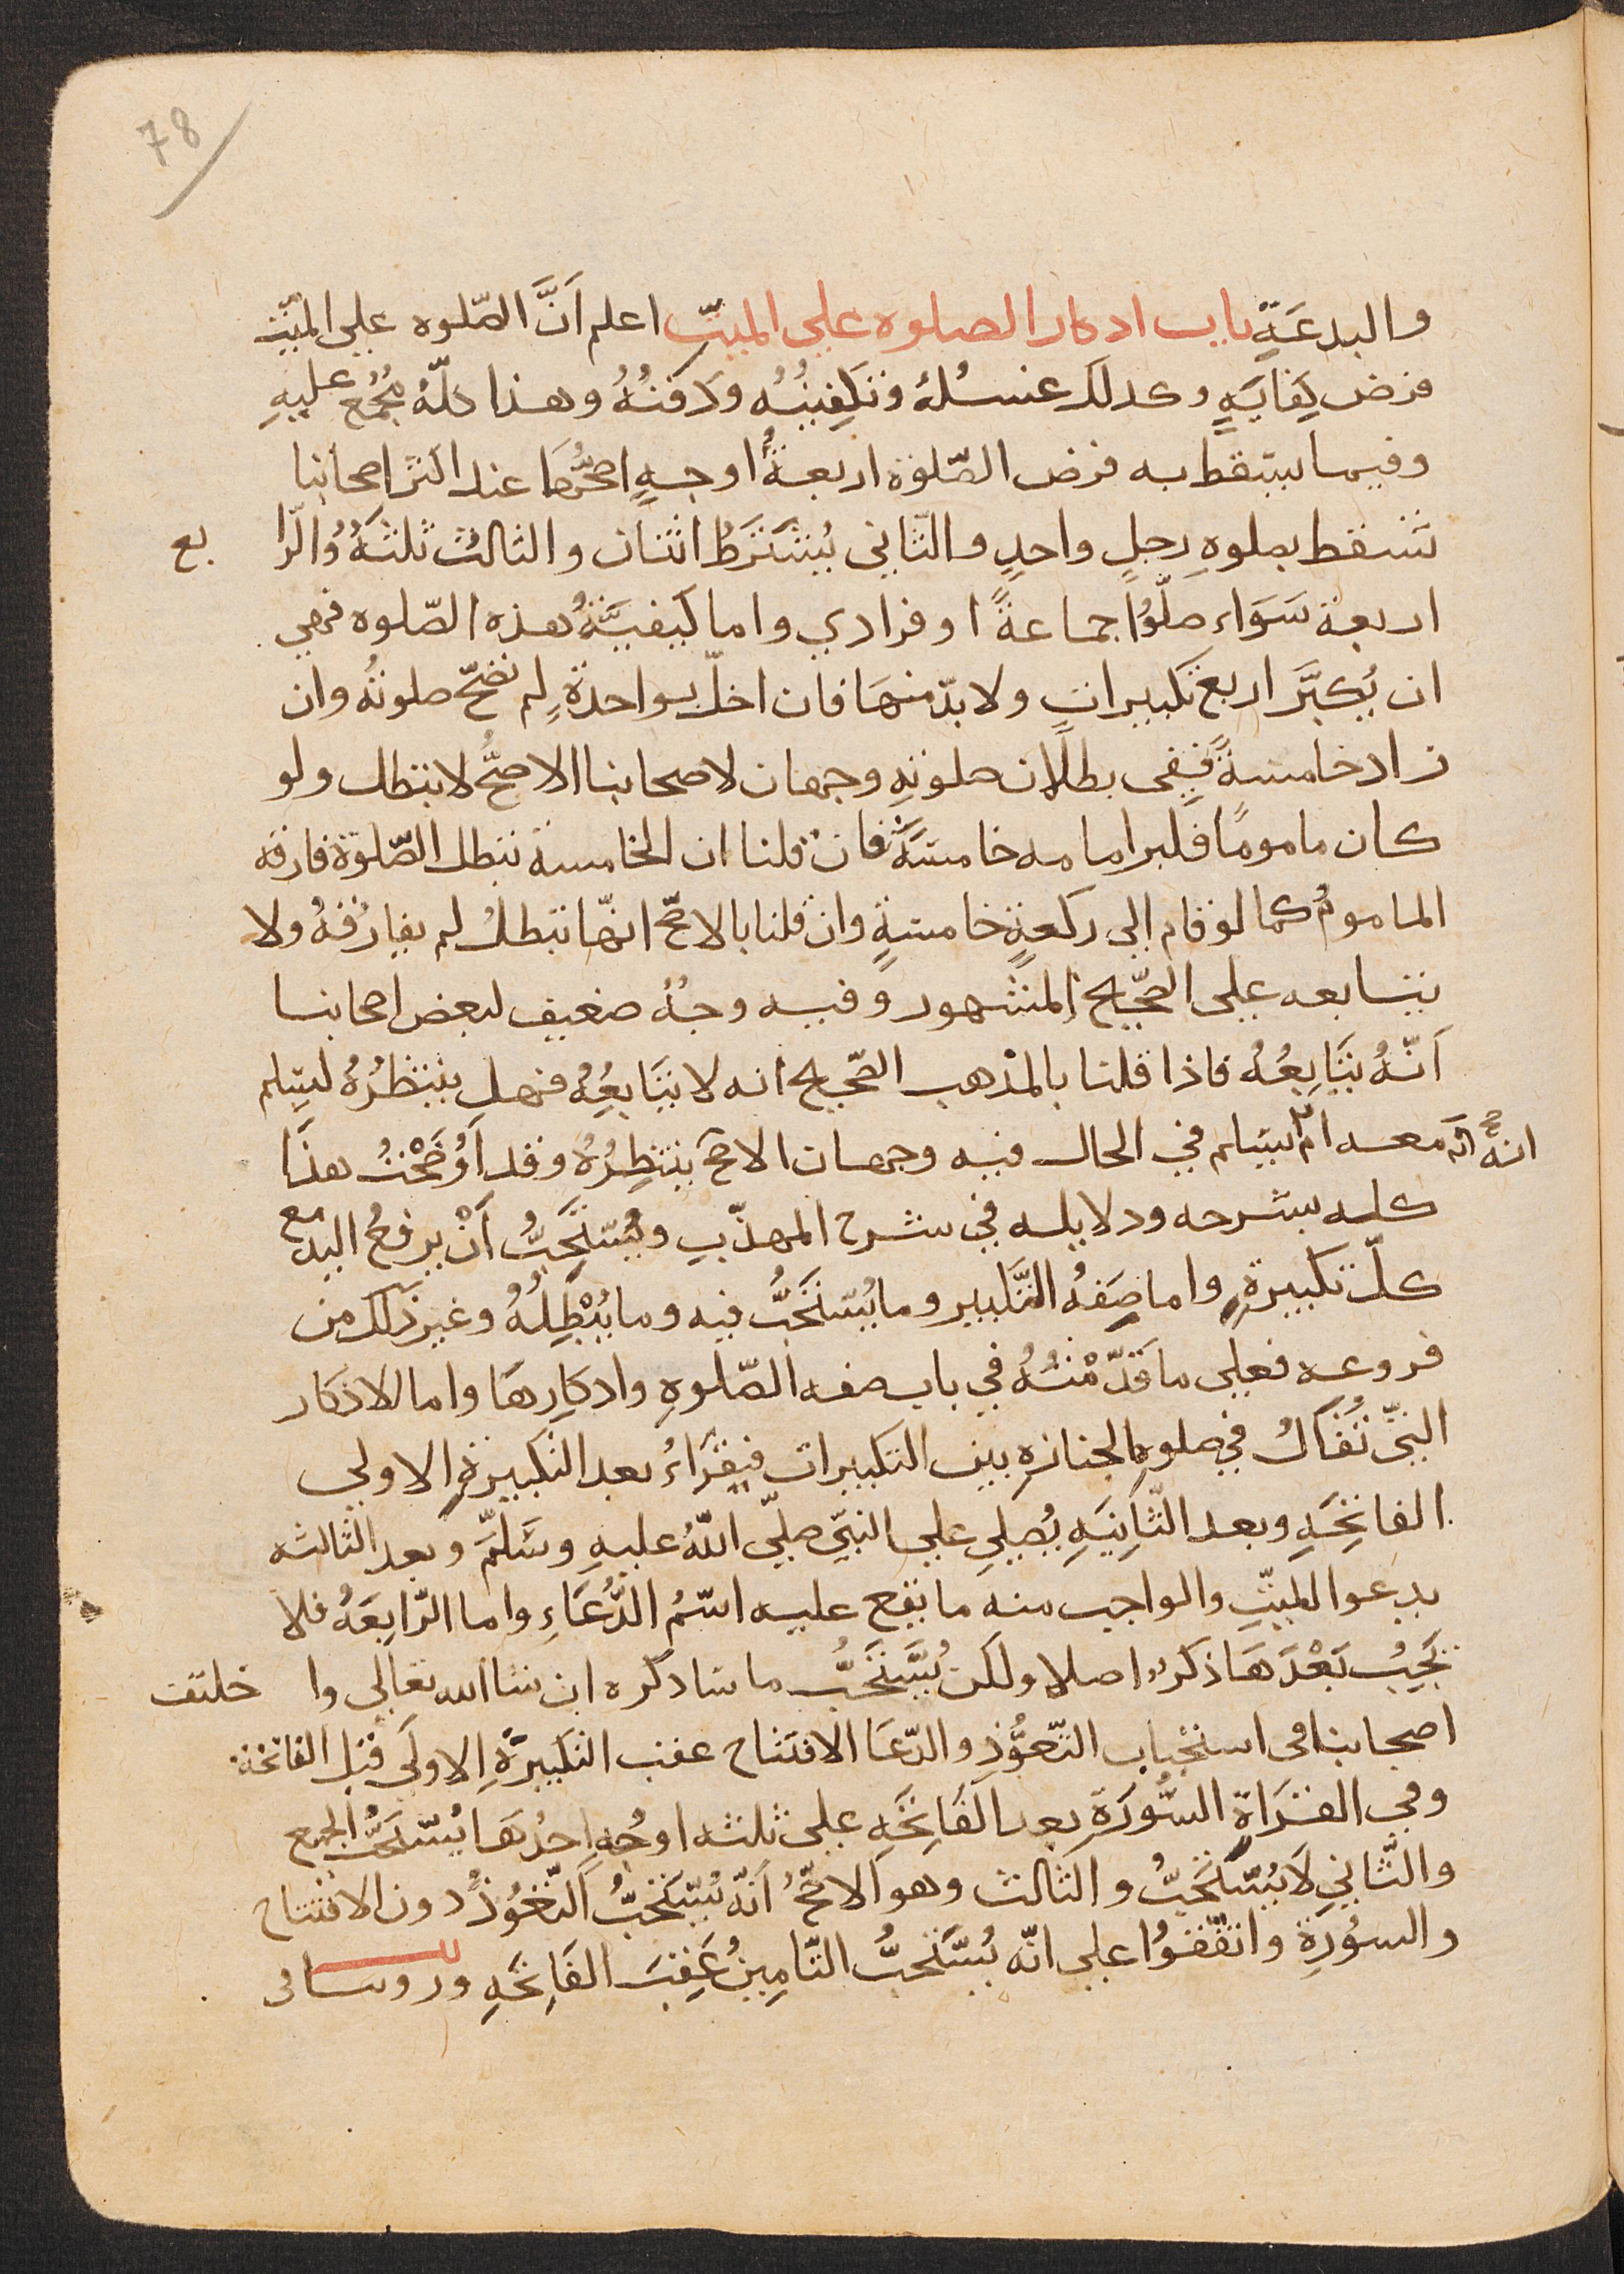 78
والبدعَةِ باب ادكار الصلوه علي الميّت اعلم اَنَّ الصّلوه علي الميّت
فرض كِفايَهٍ وكدلك غسلُهُ وتكفِينُهُ ودَفنُهُ وهذا كلّهُ مُجمَعٌ عليهِ
وفيما يسقط به فرض الصّلوة اربعةُ اوجهٍ اصحُّها عند اكثر اصحابنا
تسقط بصلوهِ رجلٍ واحدٍ والثّاني يُشتَرَطُ اثنان والثالثُ ثلثَهٌ والرّا بع
اربعة سَوَاء صلّوُا جماعةً او فرادي واما كَيفيَّةُ هذه الصّلوه فهي
ان يُكبَّر اربع تكبيراتٍ ولا بدّ منهَا فان اخلّ بواحدةٍ لم تصحّ صلوتُه وان
زاد خامسةً ففي بطلَان صلوتِهِ وجهان لاصحابنا الاصحُّ لا تبطل ولو
كان مامومًا فكبر امامه خامسَةً فان قلنا ان الخامسة تبطل الصّلوة فارقه
المامومُ كما لو قام الي ركعةٍ خامسةٍ وان قلنا بالاصحّ انّها تبطلُ لم يفارُقهُ ولا
يتابعه علي الصّحيح المشهور وفيه وجهٌ ضعيف لبعض اصحابنا
اَنّهُ يتَابِعُهُ فاذا قلنا بالمذهب الصّحيح انه لا يتَابعُهُ فهل ينتظرُهُ ليسلم
معه ام يسلم في الحال فيه وجهان الاصحّ انهُ ينتظِرُهُ وقد اَوْضَحْتُ هذَا
كله بشرحه ودلايله في شرح المهذّبِ ويُستَحَبُّ اَنْ يرفعُ اليد مع
كلّ تكبيرةٍ واما صِفَهُ التَّكبير وما يُستَحَبُّ فيه وما يُبْطِلُهُ وغير ذلك من
فروعه فعلي ما قدّمْتُهُ في باب صفه الصّلوهِ وادكارِهَا واما الاذكار
التيّ تُقالُ في صلوهِ الجنازهِ بين التكبيرات فيقرَاءُ بعد التكبيرةِ الاولي
الفاتِحَهِ وبعد الثّانِيَهِ يُصلِي علي النبيّ صلّي اللّهُ عليهِ وسَلّمَّ وبعد الثالثه
يدعوا للميّتِ والواجب منه ما يقع عليه اسْمُ الدُّعَاءِ واما الرّابِعَهُ فلا
تَجِبُ بَعْدَهَا ذكرٌ اصلا ولكن يُسْتَحَبُّ ما سَادكره ان شا الله تعالي وا ختلف
اصحابنا في استحباب التّعوُّذِ والدّعَا الافتتاح عقب التكبيرَةِ الاولَي قبل الفاتحة
وفي القرَاةِ السُّورَةِ بعد الفَاتِحَهِ علي ثلثه اوجُهٍ احدُهَا يُستَحَبُّ الجميع
والثّاني لَا يُستَحَبُّ والثالث وهو الاصحُّ اَنّه يُستحَبُّ التّعوُّذُ دون الافتتاح
والسُورَةِ واتفقُوُا علي انّه يُستَحبُّ التّامِينُ عَقِبَ الفَاتِحَهِ وروينا في